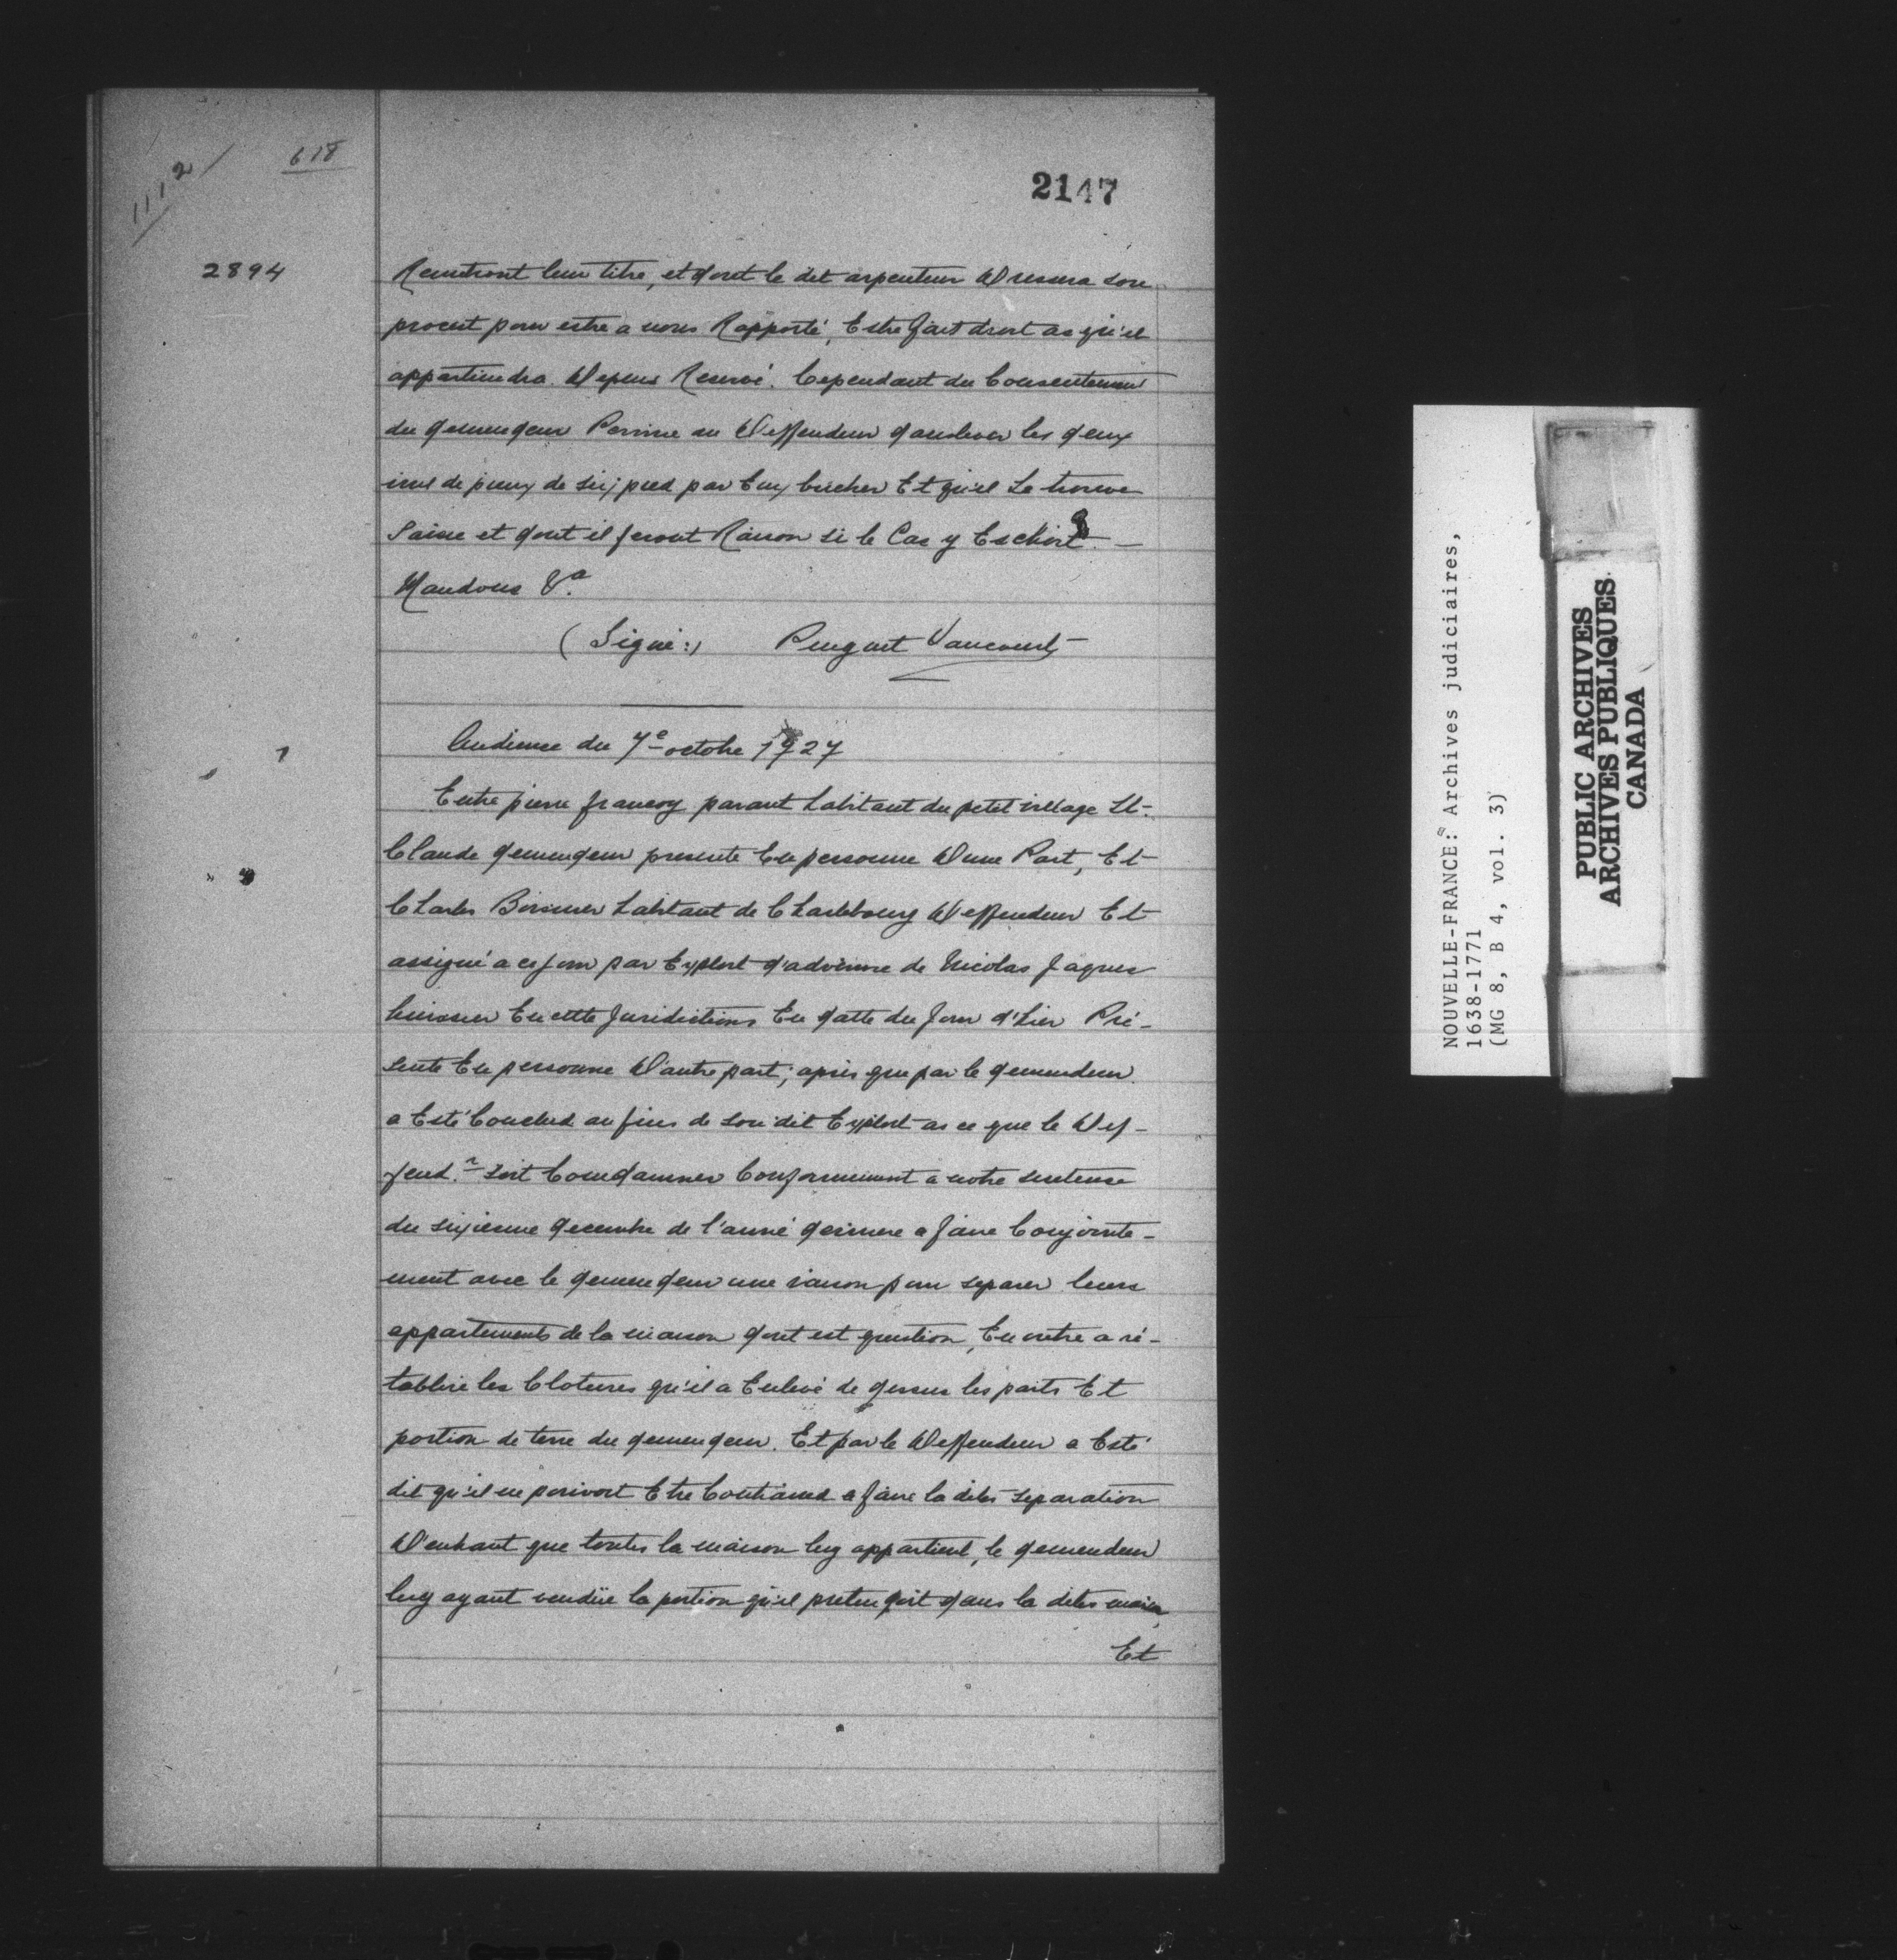 1112/ 618
2147
2894
Remetront leur titre, et dont le dit arpenteur Dressera son
procest pour estre a nous Rapporté, Estre fait droit as qu'il
appartiendra. Depens Reservé. Cependant du Consentement
du demendeur Permie au Deffendeur d'anlever les deux
mil de pieux de sis pied par Eux bucher Et qu'il Se trouve
Saisie et dont il feront Raison si le Cas y Eschoit.—
Mandons &a.
(Signé:) Penguet Vaucourt
Audience du 7e octobre 1727
Entre pierre francoy parant habitant du petit village St-
Claude demendeur presente En personne D'une Part, Et
Charles habitant de Charlebourg Deffendeur Et
assigné a ce jour par Exploit d'advenire de Nicolas Jaques
huissier En cette Juridictions En datte du jour d'hier Pré-
sente En personne D'autre part; après que par le demendeur
a Esté Conclud au fins de son dit Exploit as ce que le Def-
fend.r soit Comdamner Conformement a notre sentense
du sixiesme decembre de l'anné derniere a faire Conjointe-
ment avec le demendeur une pour separer leurs
appartements de la maison dont est question, En outre a ré-
tablire les Clotures qu'il a Enlevé de dessus les parts Et
portion de terre du demendeur. Et par le Deffendeur a Esté
dit qu'il ne Etre Contraind a faire la dites separation
D'autant que toutes la maison luy appartient, le demendeur
luy ayant vendüe la portion qu'il pretendoit dans la dites maison,
Et
NOUVELLE-FRANCE: Archives judiciaires,
1638-1771
(MG 8, B 4, vol. 3)
PUBLIC ARCHIVES
ARCHIVES PUBLIQUES
CANADA